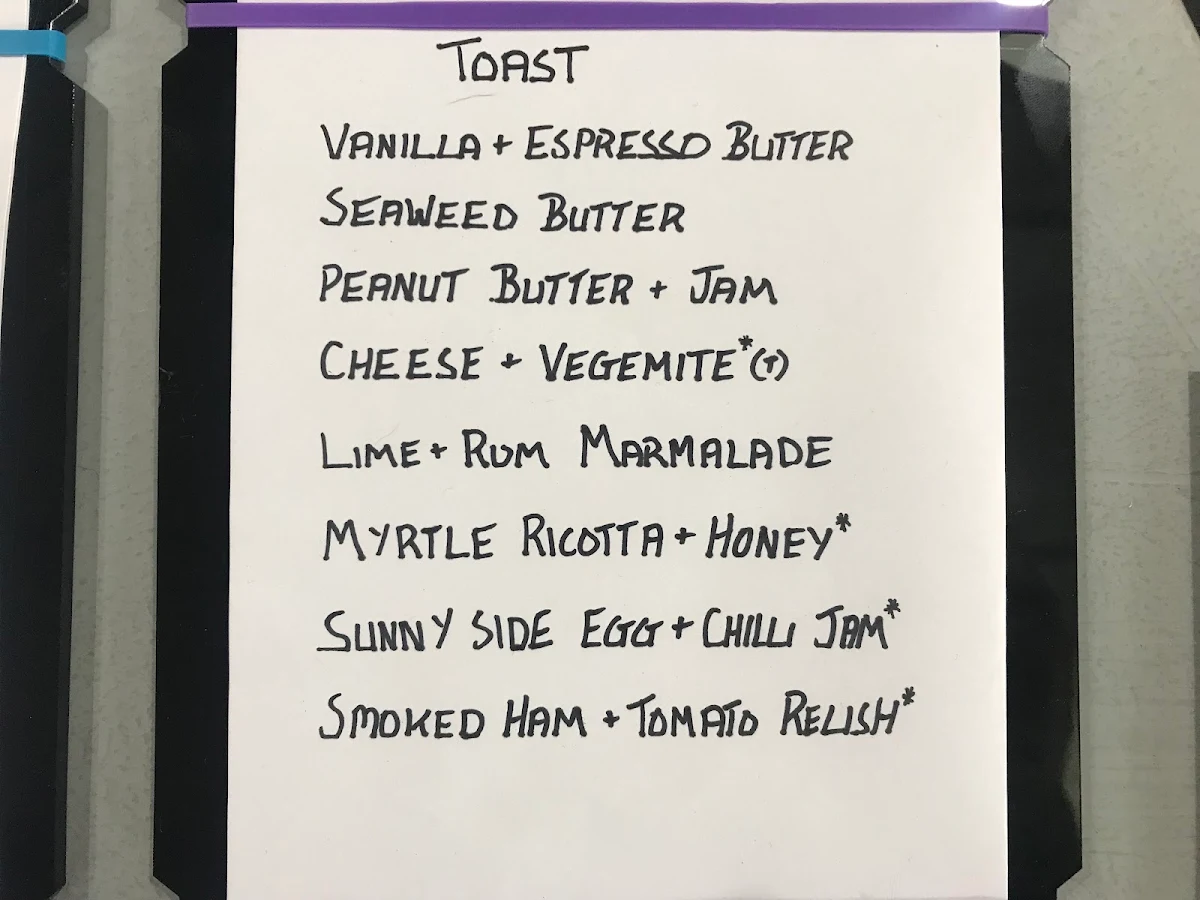 TOAST
VANILLA + ESPRESSO BUTTER
SEAWEED BUTTER
PEANUT BUTTER + JAM
CHEESE + VEGEMITE*(T)
LIME + RUM MARMALADE
MYRTLE RICOTTA + HONEY*
SUNNY SIDE EGG + CHILLI JAM*
SMOKED HAM + TOMATO RELISH*